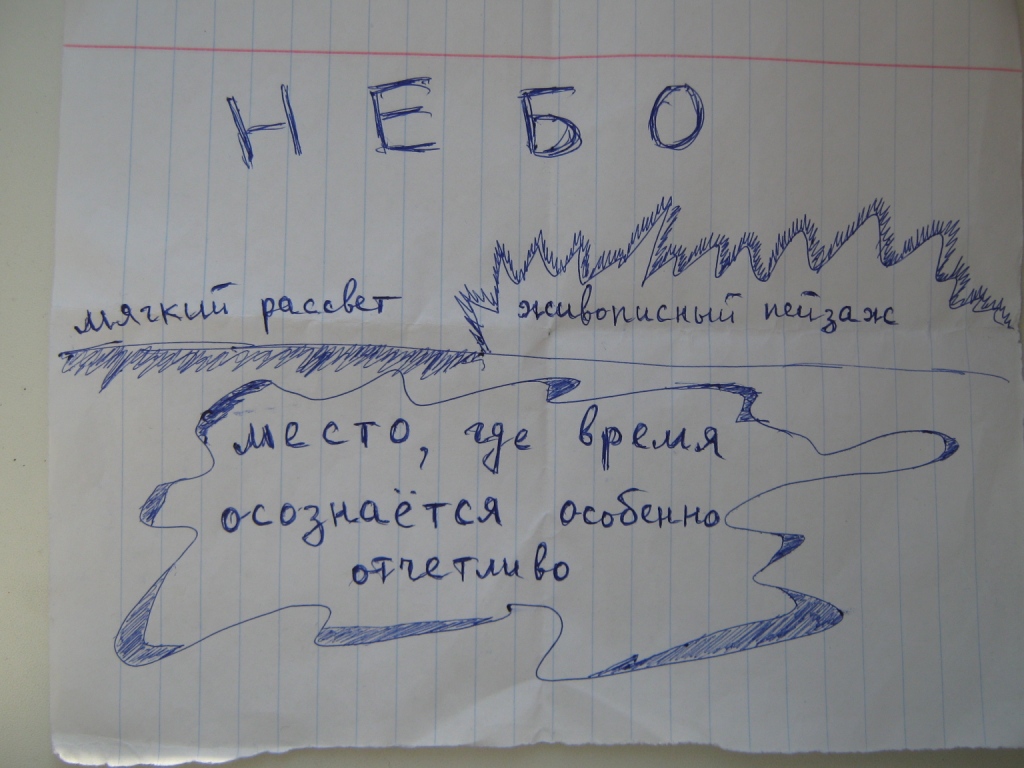 НЕБО
мягкий рассвет
живописный пейзаж
место, где время
осознаётся особенно
отчетливо